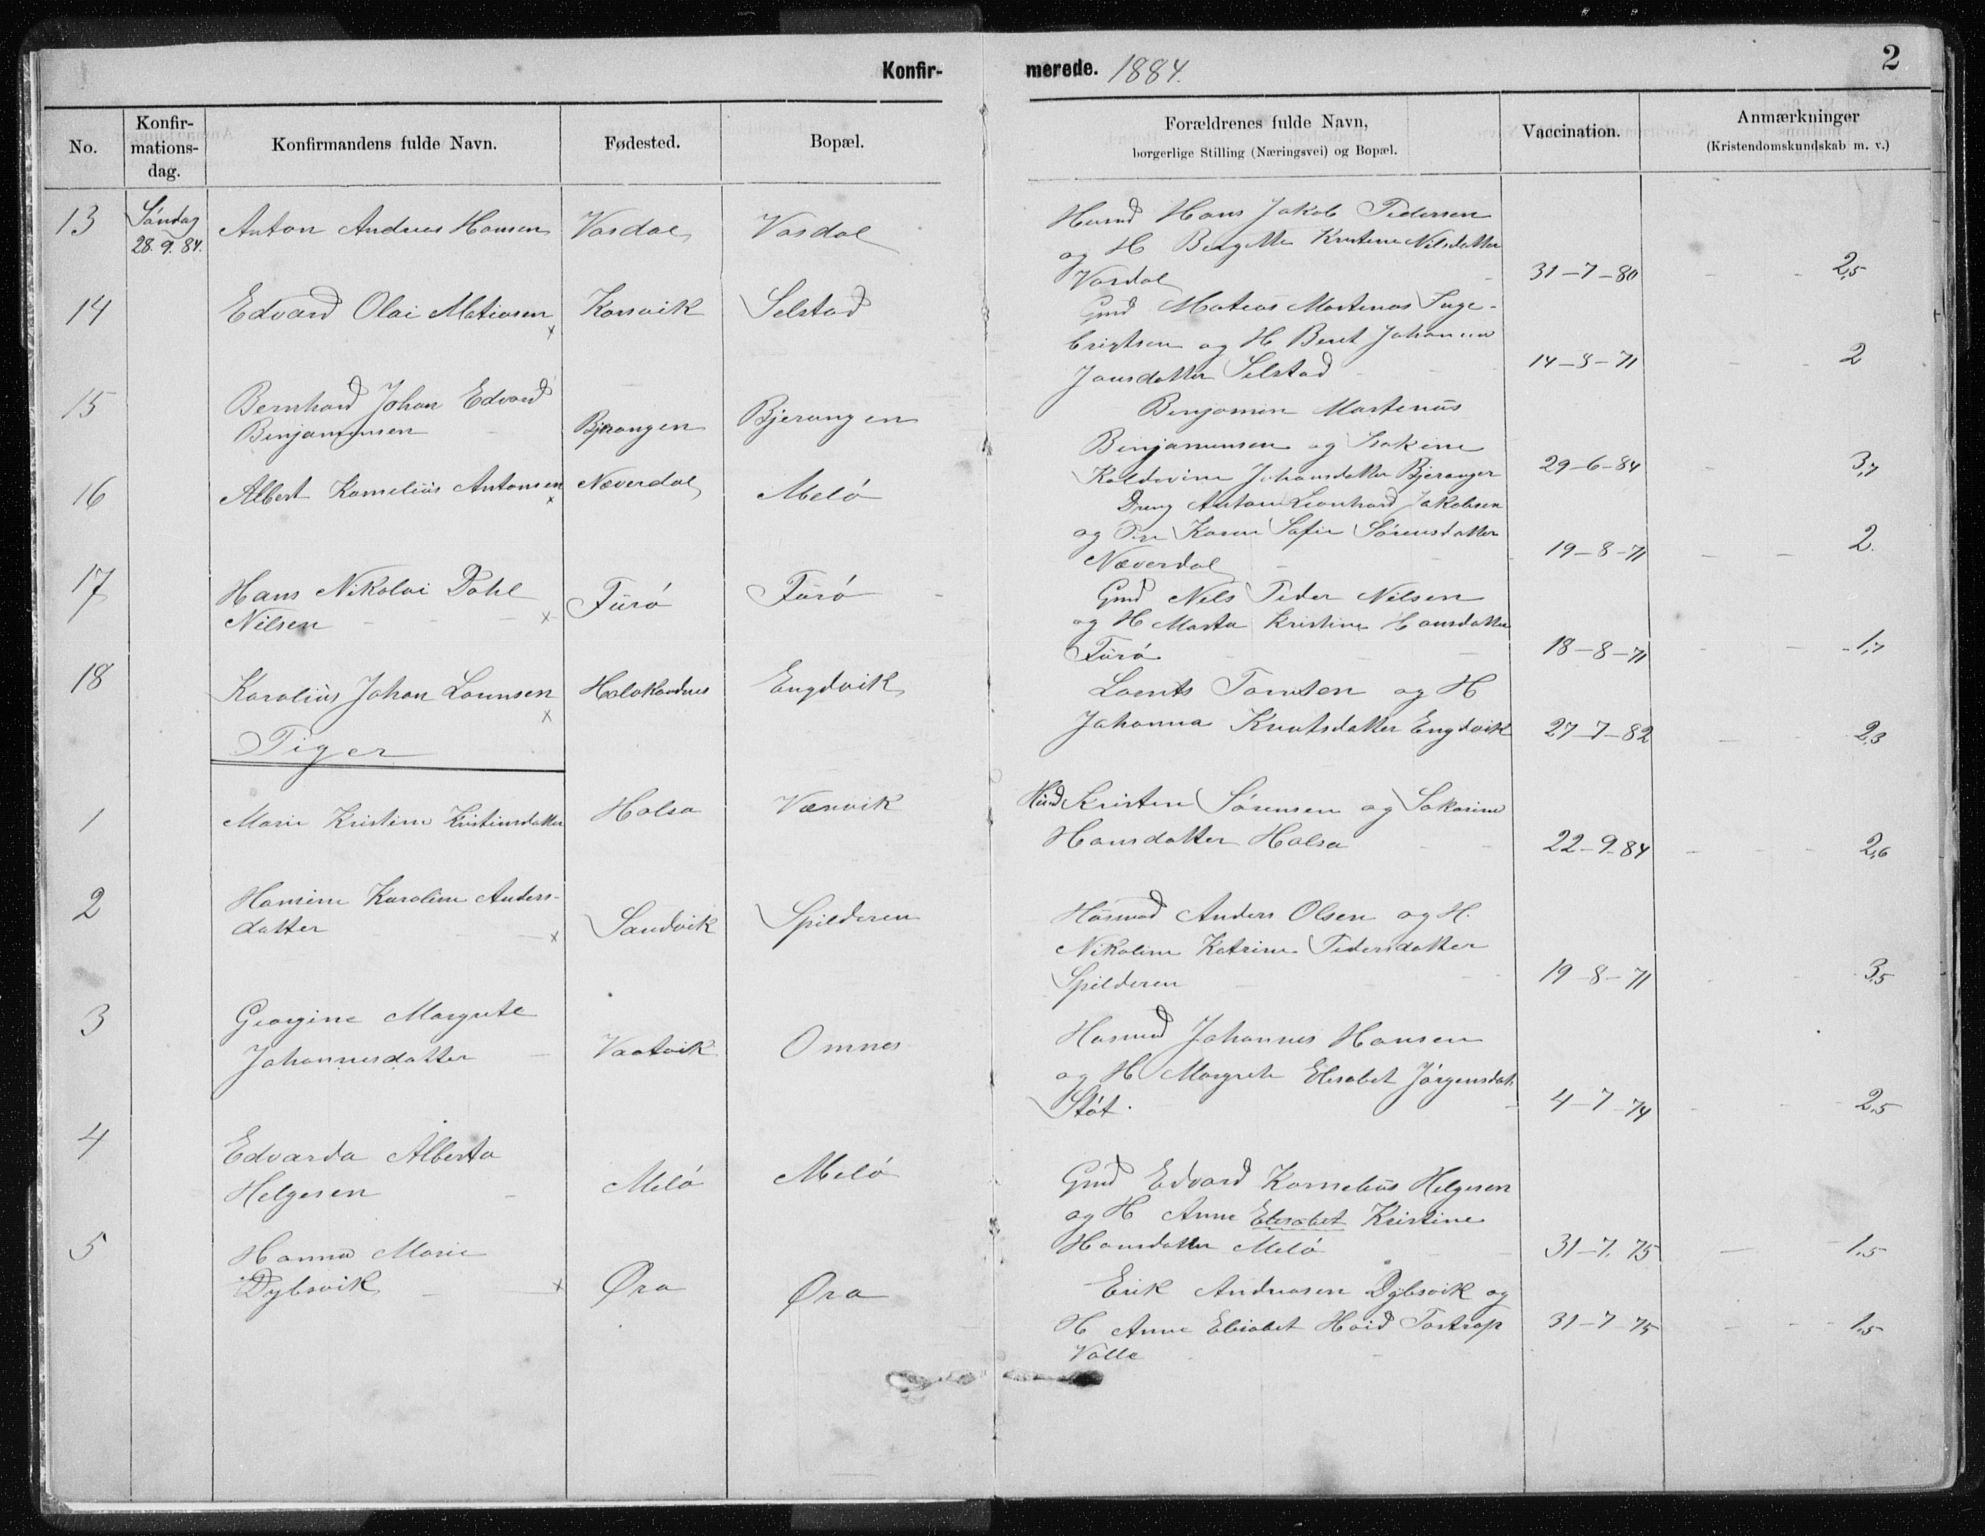 Konfir-
merede. 1884.
2
No.
Konfir-
mations-
dag.
Konfirmandens fulde Navn.
Fødested.
Bopæl.
Forældrenes fulde Navn,
borgerlige Stilling (Næringsvei) og Bopæl.
Vaccination.
Anmærkninger
(Kristendomskundskab m. v.)
13 Søndag Anton Andreas Hansen Vasdal Vasdal
28.9.84.
Husmd Hans Jakob Pedersen
og H Bergitte Kristine Nilsdatter
Vasdal 31-7-80 2,5
14 Edvard Olai Matiasen x Korsvik Selstad
Gmd Matias Martenas Inge-
brigtsen og H Berit Johanna
Jonsdatter Selstad 14-8-71 2
15 Bernhard Johan Edvard
Benjaminsen Bjerangen Bjerangen
Benjamin Martenus
Benjaminsen og Isakine
Johansdatter Bjeranger 29-6-84 3,7
16 Albert Kornelius Antonsen x Næverdal Melø
Dreng Anton Leonhard Jakobsen
og Pige Karen Sofie Sørensdatter
Næverdal 19-8-71 2
17 Hans Nikolai Dahl
Nilsen x Furø Furø
Gmd Nels Peder Nilsen
og H Marta Kristine Hansdatter
Furø 18-8-71 1,7
18 Karolius Johan Lorentsen x Engdvik
Lorents Torstensen og H
Johanna Knutsdatter Engdvik 27-7-82 2,3
Piger
1 Marie Kristine Kristensdatter Halsa Værvik
Husmd Kristen Sørensen og Sakarine
Hansdatter Halsa 22-9-84 2,6
2 Hansine Karoline Anders-
datter x Sandvik Spilderen
Husmd Anders Olsen og H.
Nikoline Katrine Pedersdatter
Spilderen 19-8-71 3,5
3 Georgine Margrete
Johannesdatter Vaatvik Omnes
Husmd Johannes Hansen
og H Margrete Elisabet Jørgensdat.
Støt. 4-7-74 2,5
4 Edvarda Alberta
Helgesen Melø Melø
Gmd Edvard Kornelius Helgesen
og H Anne Elisabet Kristine
Hansdatter Melø 31-7-75 1,5
5 Hanna Marie
Dybsvik x Øra Øra
Erik Andreasen Dybsvik og
H Anne Elisabet Hvid Tostrap
Valle 31-7-75 1,5